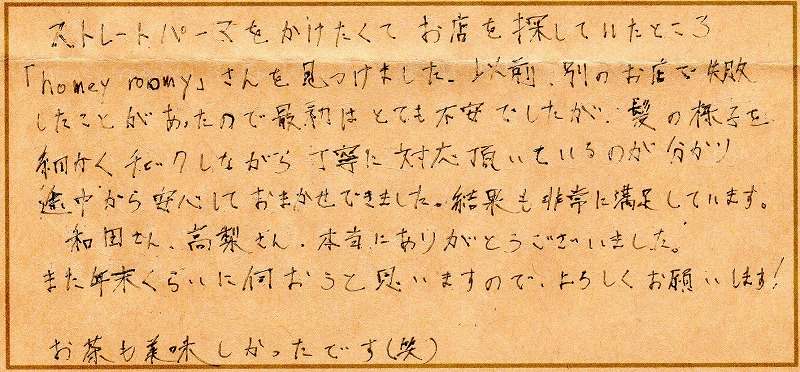 ストレートパーマをかけたくてお店を探していたところ
「homey roomy」さんを見つけました。以前、別のお店で失敗
したことがあったので最初はとても不安でしたが、髪の様子を
細かくチェックしながら丁寧に対応頂いているのが分かり
途中から安心しておまかせできました。結果も非常に満足しています。
和田さん、高梨さん、本当にありがとうございました。
また年末くらいに伺おうと思いますので、よろしくお願いします!
お茶も美味しかったです(笑)